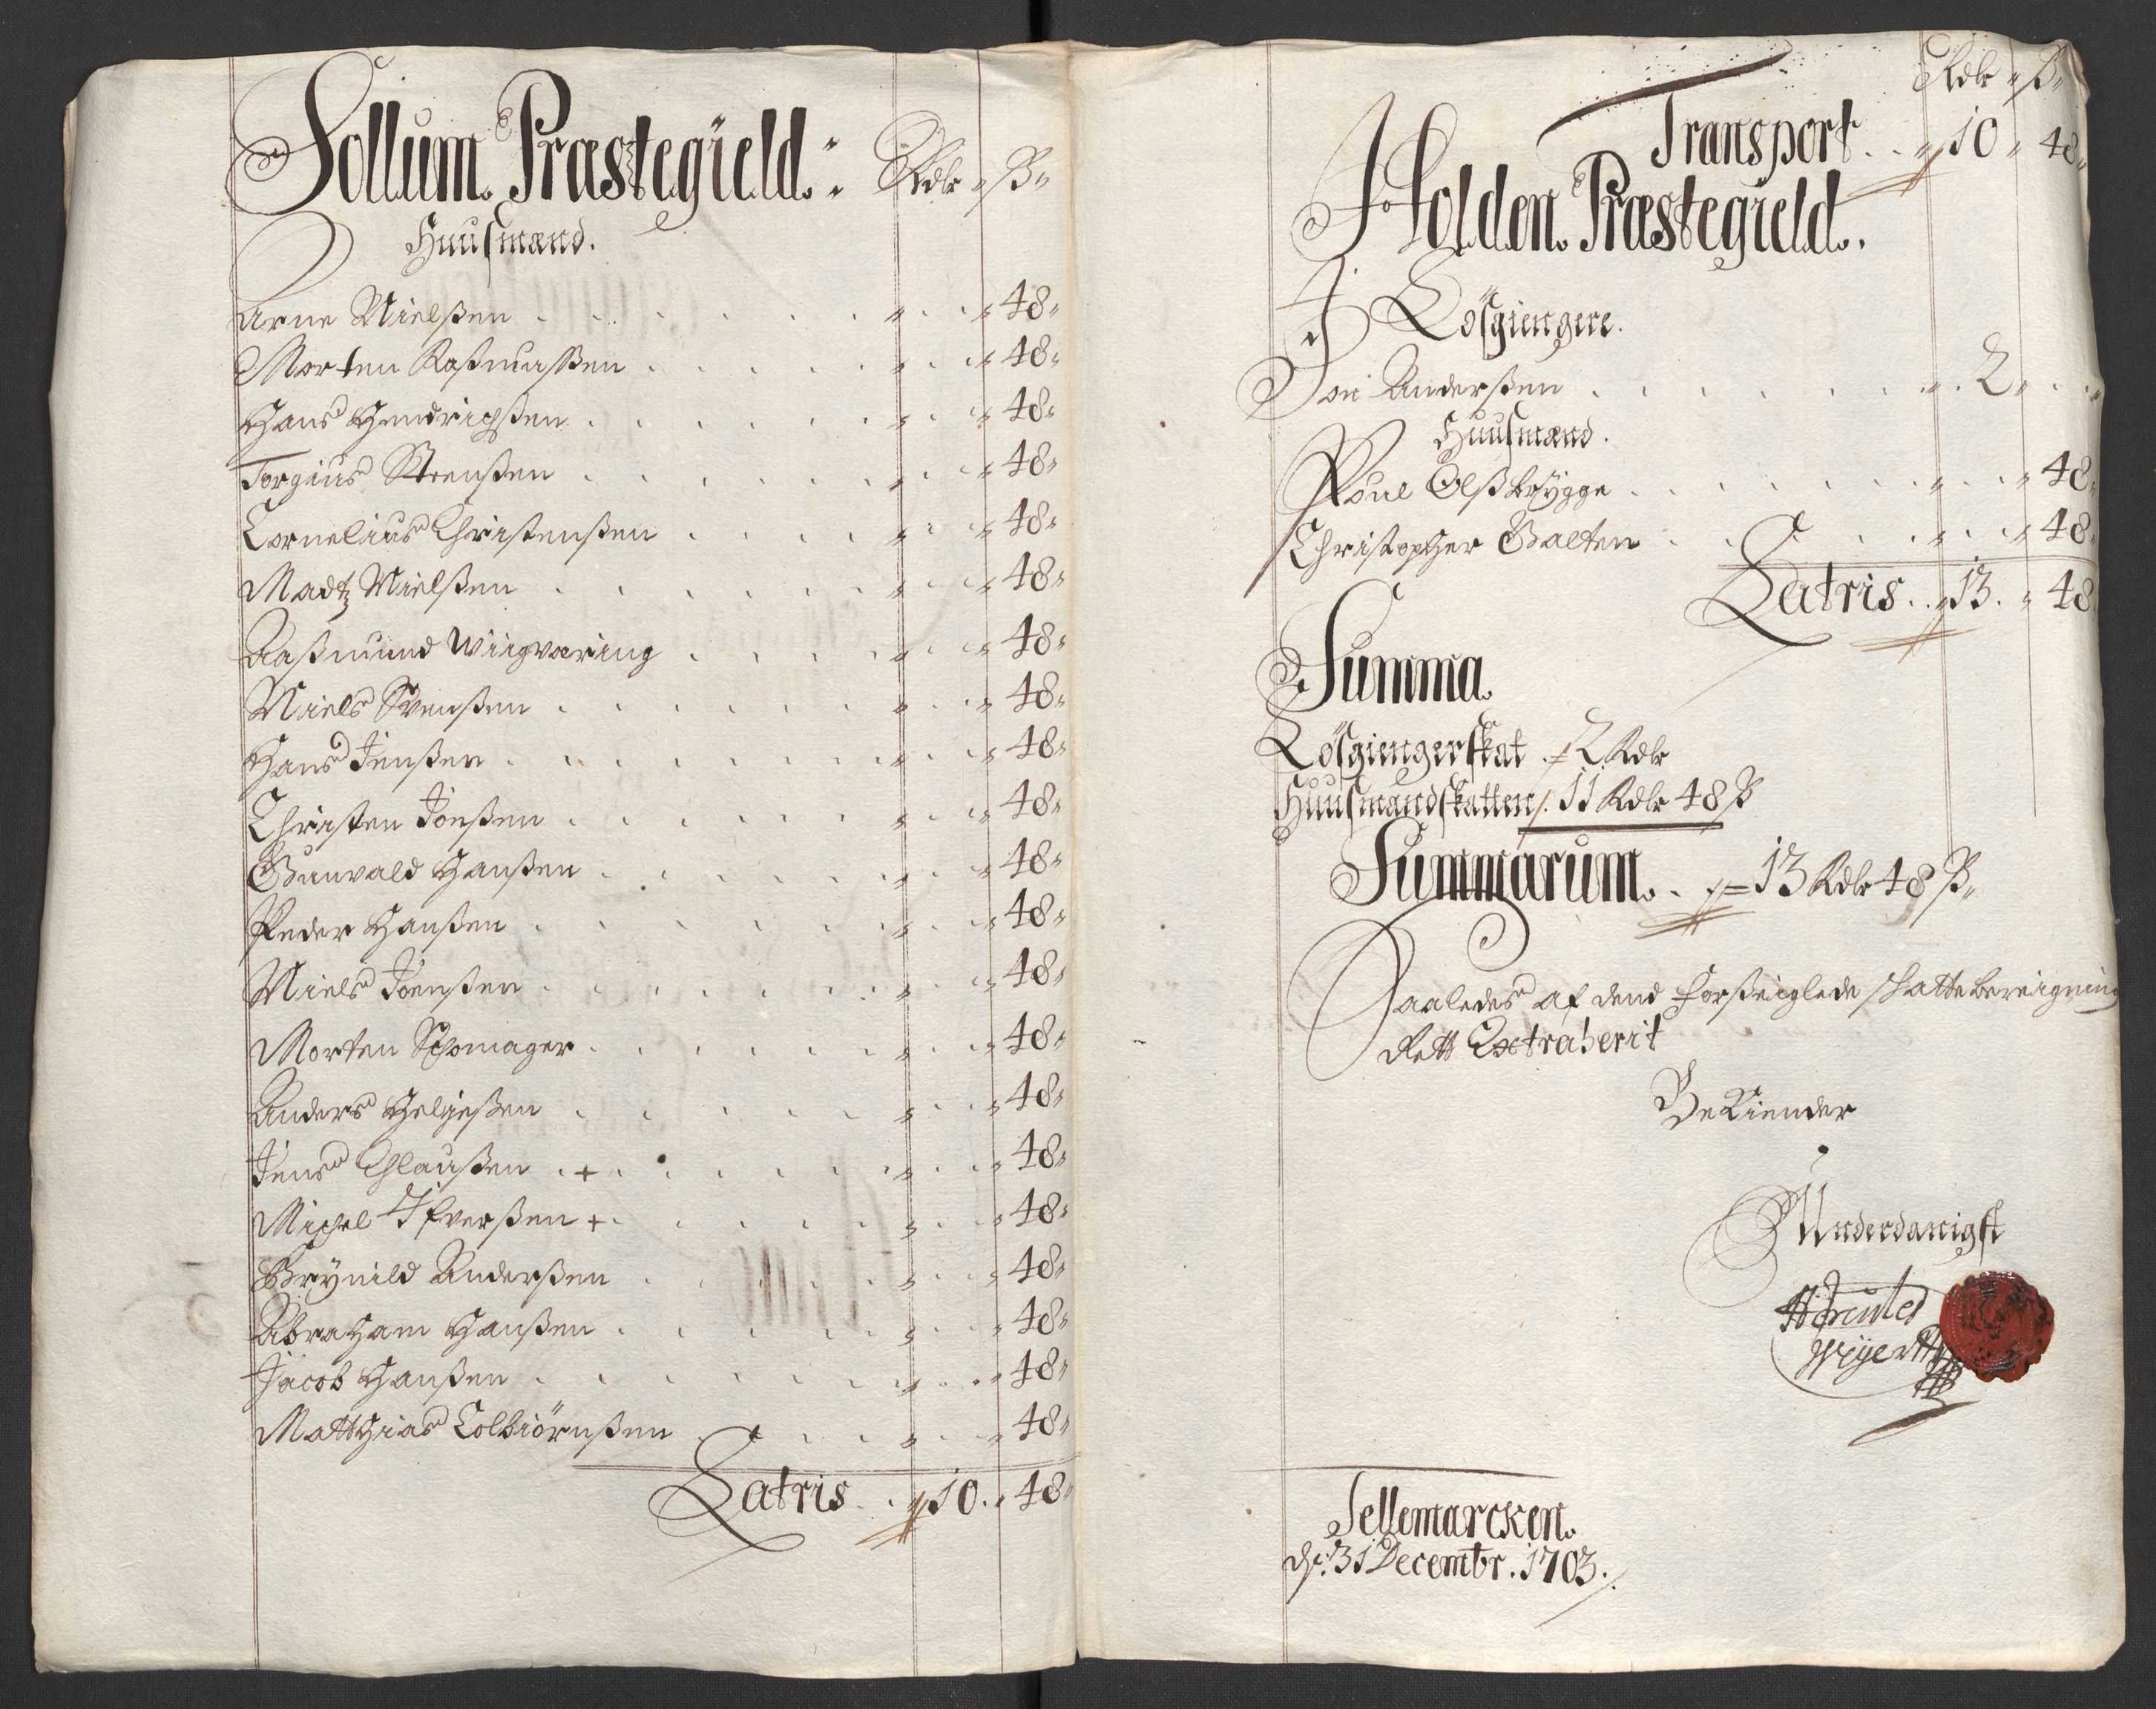 Sollum Præstegield :  Rdlr ß
Huusmænd.
Arne Nielßen . . . . . . 48
Morten Raßmußen . . . . . 48
Hans Hendrichßen . . . . . 48
Torgius Steenßen . . . . . 48
Cornelius Christenßen . . . . 48
Madtz Nielßen . . . . . 48
Aaßmund Wiigværing . . . . 48
Niels Svenßen . . . . . 48
Hans Jenßen . . . . . 48
Christen Jonßen . . . . . 48
Gunvald Hanßen . . . . . 48
Peder Hanßen . . . . . 48
Niels Joenßen . . . . . 48
Morten Schomager . . . . . 48
Anders Helgeßen . . . . . 48
Jens Clausßen . + . . . . 48
Michel Ifverßen + . . . . 48
Brynild Anderßen . . . . . 48
Abraham Hanßen . . . . . 48
Jacob Hanßen . . . . . 48
Matthias Colbiörnßen . . . . 48
Latris . . 10 . 48
Rdlr ß
Transport . . 10 48
Holden Præstegield.
Lösgiengere.
Jon Anderßen . . . . . 2
Huusmænd.
Poul Olßbrygge . . . . . 48
Christopher Galten . . . . . 48
Latris . . 13 . 48
Summa
Lösgiengerskat . = 2 Rdlr
Huusmandskatten . 11 Rdlr 48 ß
Summarum . . = 13 Rdlr 48 ß
Saaledes af dend forseiglede skattebereigning
Rett Extraherit
Bekiender
Underdanigst
H Hercules
Weyer
Tellemarcken
d: 31 Decembr. 1703.